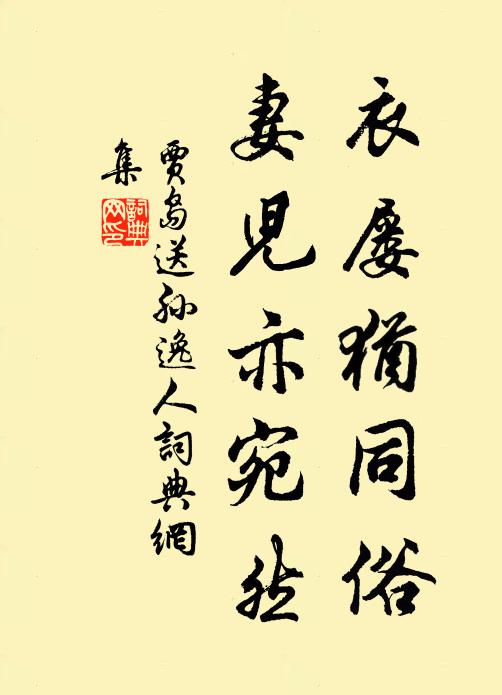 衣屢猶同俗
妻兒亦宛然
賈島送孫逸人詞典網
集
詞典
网印